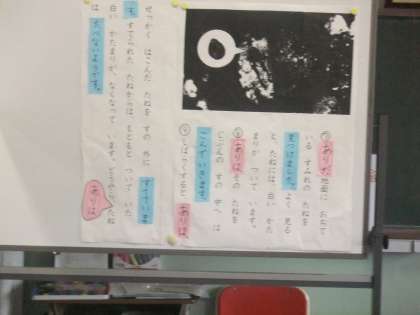 ⑦ ありが 地面に おちて
いる すみれの たねを
見つけました。よく 見る
と、たねには、白い かた
まりが ついて います。
⑧ ありは、その たねを
じぶんの すの 中へ は
こんで いきます。
⑨ しばらくすると、ありは、
せっかく はこんだ たねを すの 外に すてて いま
す。すてられた たねからは、もともと ついて いた
白い かたまりが、なくなって います。
は たべないようです。
ありは